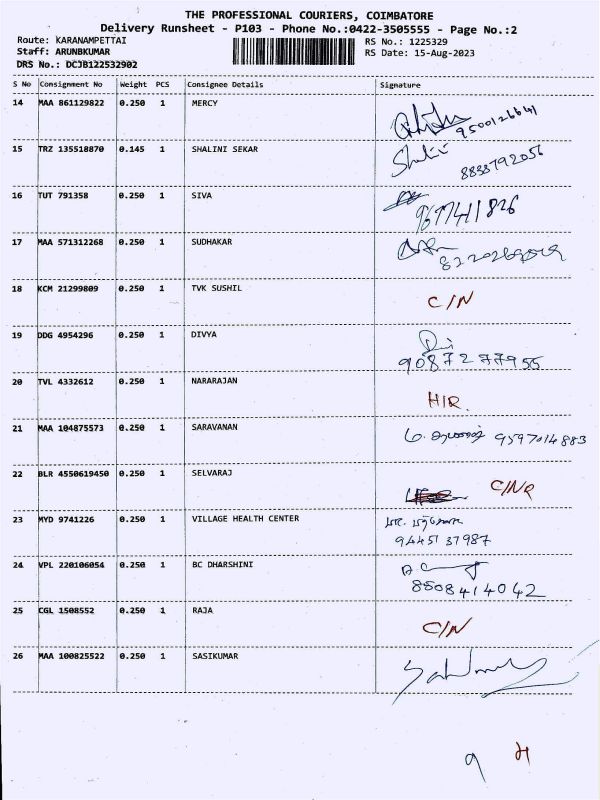 THE PROFESSIONAL COURIERS, COIMBATORE
Delivery Runsheet - P103 - Phone No.:0422-3505555 - Page No.:2
Route: KARANAMPETTAI RS No.: 1225329
Staff: ARUNBKUMAR RS Date: 15-Aug-2023
DRS No.: DCJB122532902
S No Consignment No Weight PCS Consignee Details Signature
14 MAA 861129822 0.250 1 MERCY
15 TRZ 135518870 0.145 1 SHALINI SEKAR Shalini 8838792056
16 TUT 791358 0.250 1 SIVA 9677411826
17 MAA 571312268 0.250 1 SUDHAKAR
18 KCM 21299809 0.250 1 TVK SUSHIL C/N
19 DDG 4954296 0.250 1 DIVYA 9087277955
20 TVL 4332612 0.250 1 NARARAJAN HIR.
21 MAA 104875573 0.250 1 SARAVANAN 9597014883
22 BLR 4550619450 0.250 1 SELVARAJ C/NR
23 MYD 9741226 0.250 1 VILLAGE HEALTH CENTER
9445137987
24 VPL 220106054 0.250 1 BC DHARSHINI
8508414042
25 CGL 1508552 0.250 1 RAJA C/N
26 MAA 100825522 0.250 1 SASIKUMAR
9